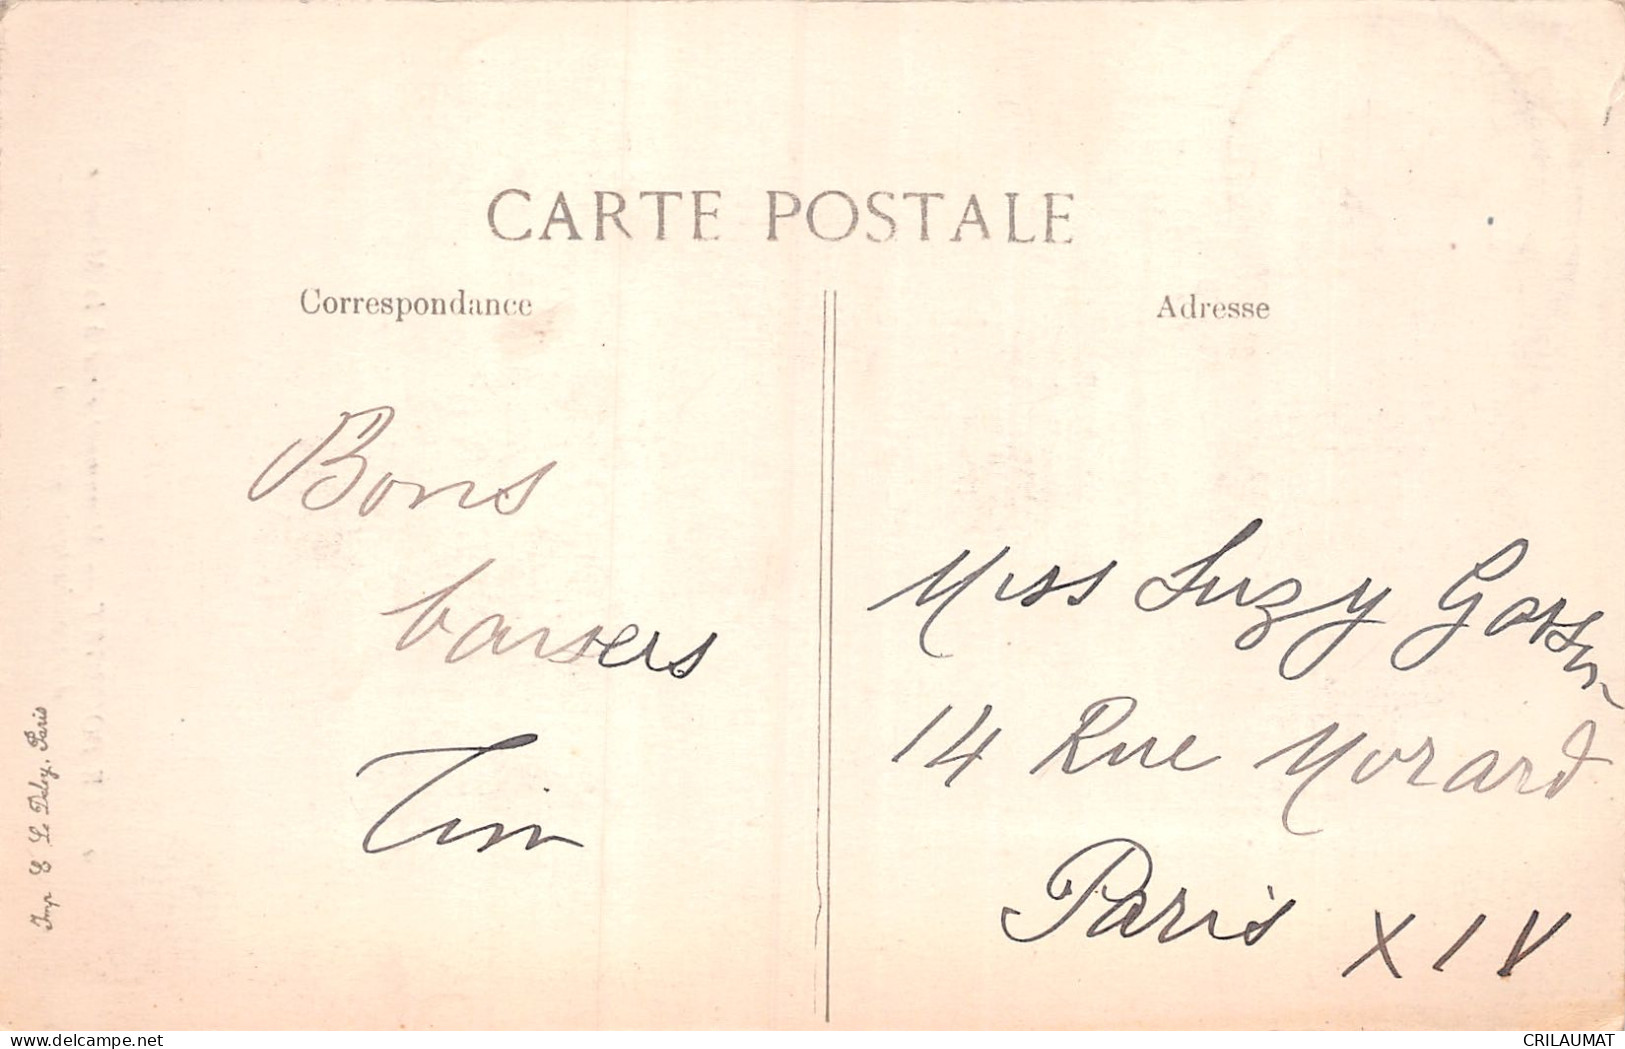 CARTE POSTALE
Correspondance
Adresse
Bons
baisers
Tim
Miss Suzy
14 Rue Morard
Paris XIV
Imp. E. Le Deley, Paris
delcampe.net
CRILAUMAT